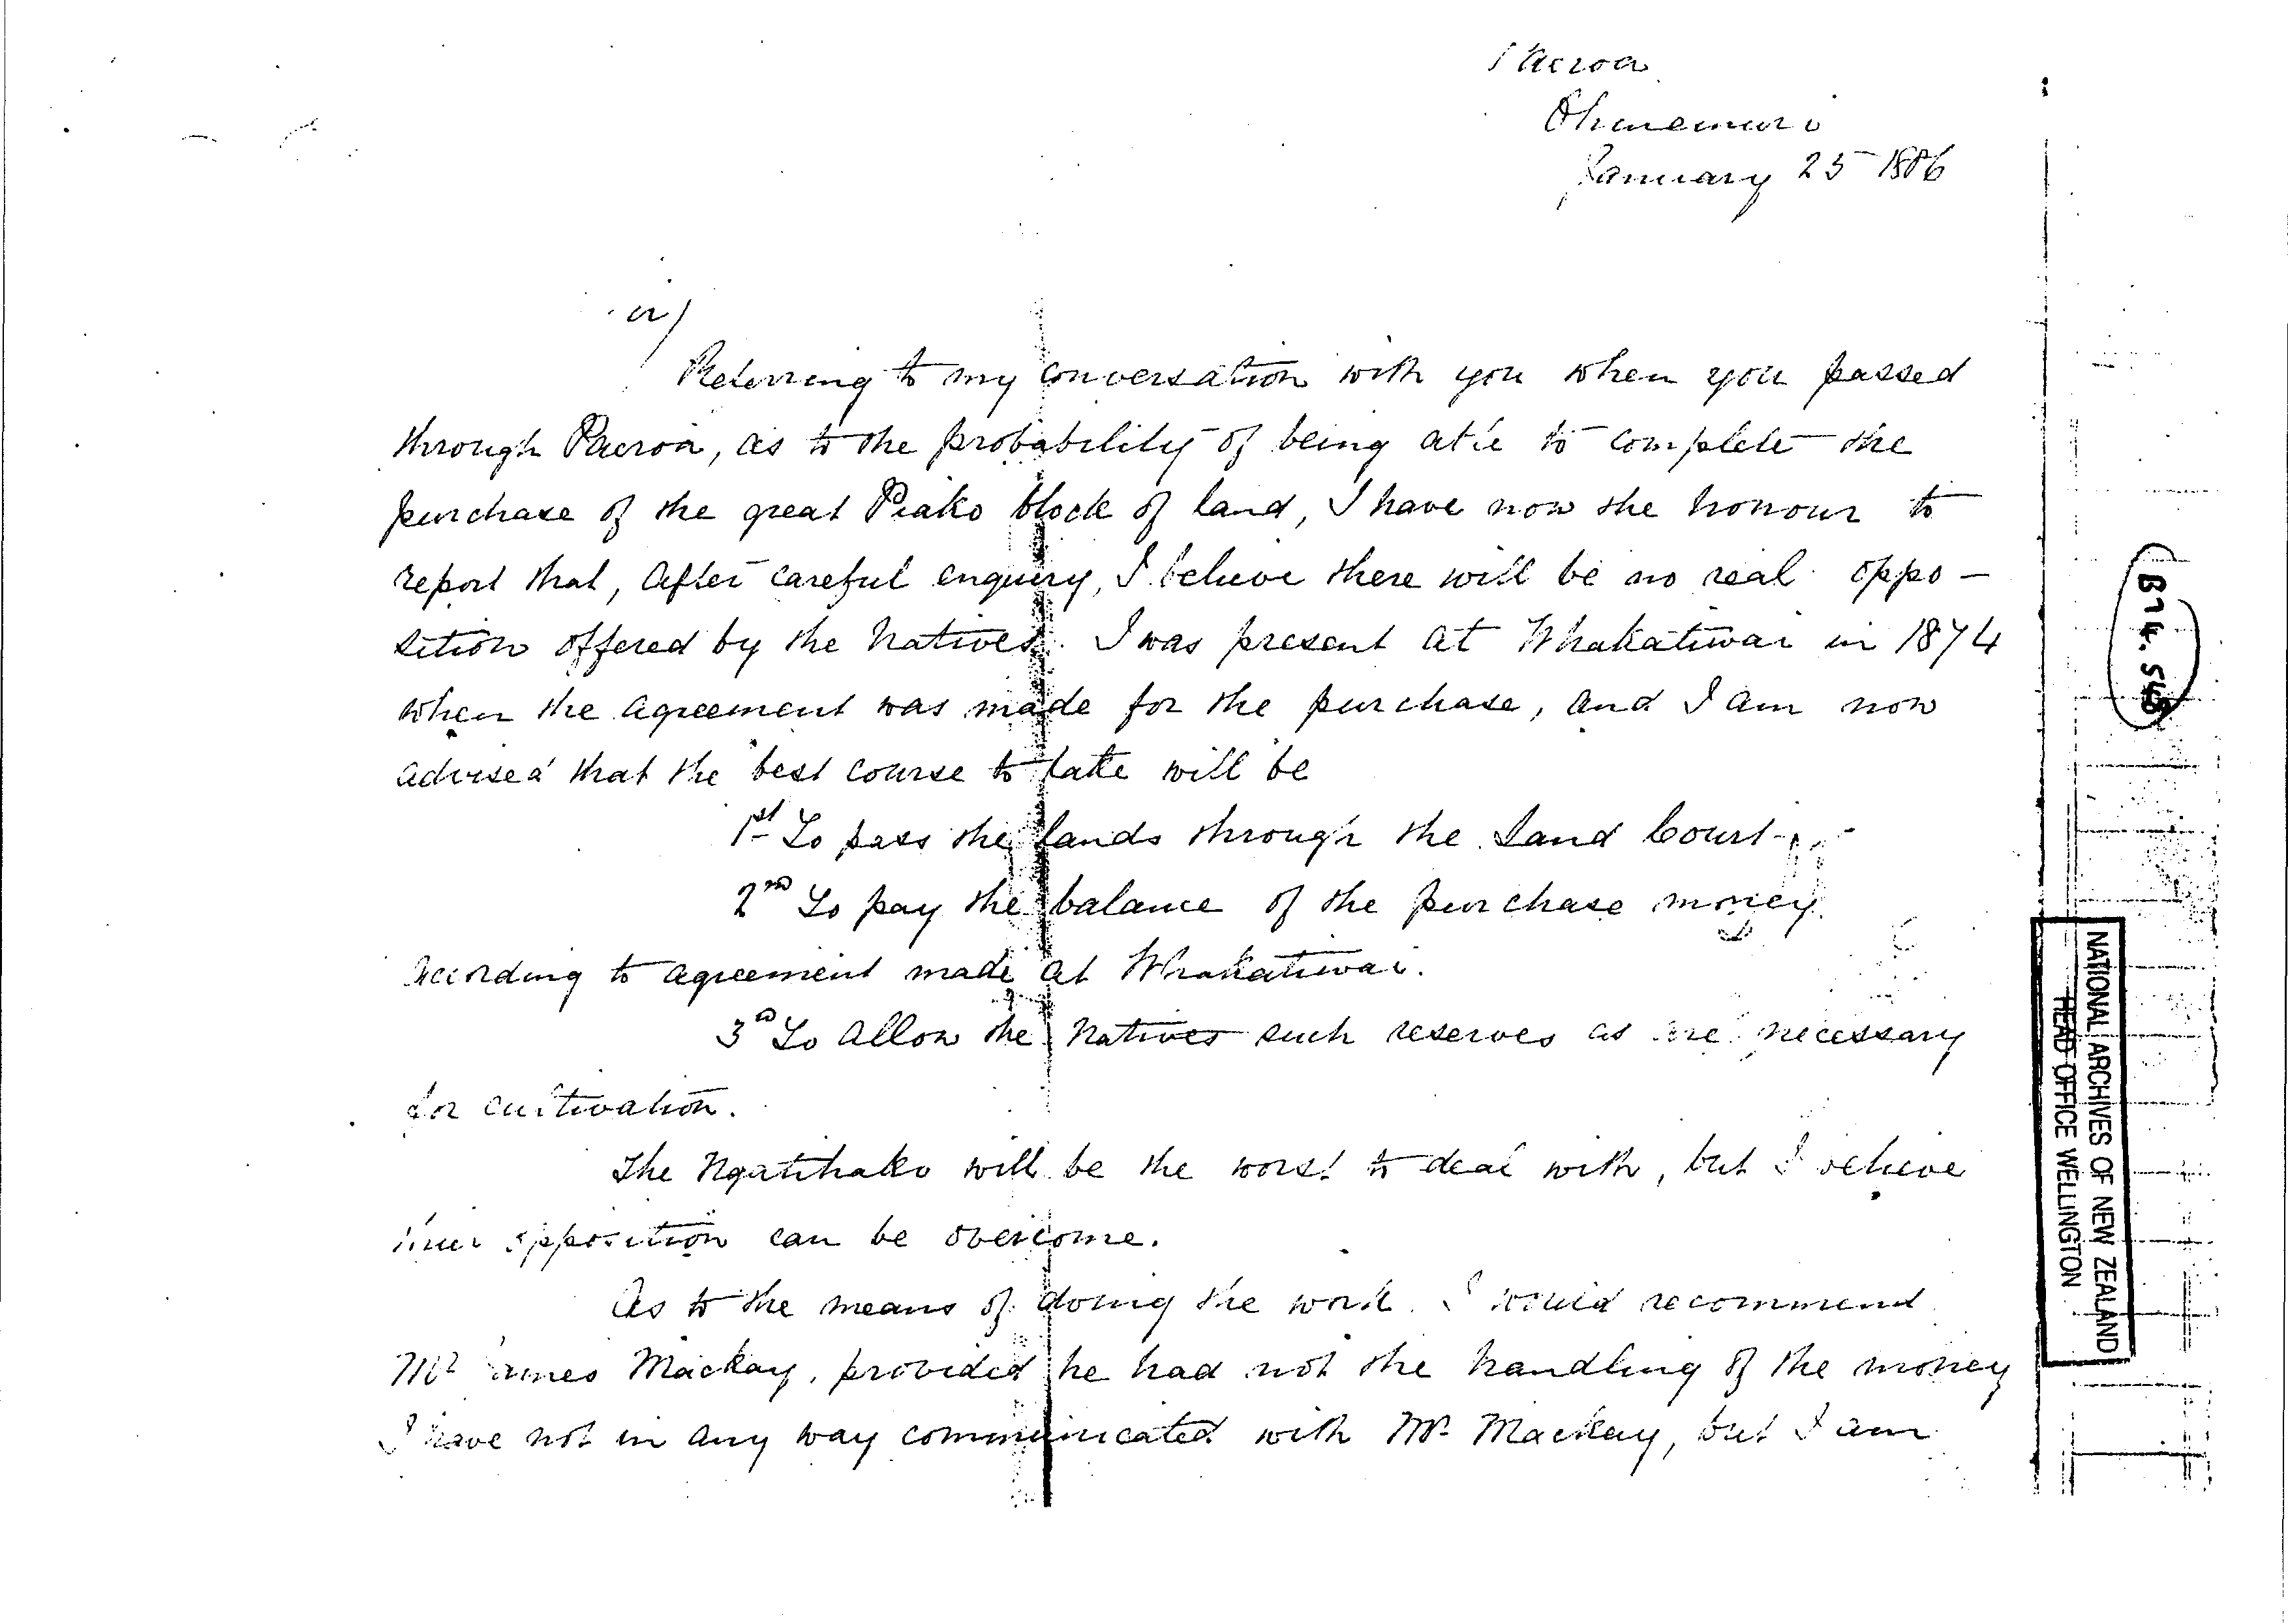 Paeroa
Ohinemuri
January 25 1886
Sir/
Referring to my conversation with you when you passed
through Paeroa, as to the probability of being able to complete the
purchase of the great Piako block of land, I have now the honour to
report that, after careful enquiry, I believe there will be no real oppo-
sition offered by the Natives. I was present at Whakatiwai in 1874
when the agreement was made for the purchase, and I am now
advised that the best course to take will be
1st To pass the lands through the Land Court
2nd To pay the balance of the purchase money
according to agreement made at Whakatiwai.
3d To allow the Natives such reserves as are necessary
for cultivation.
The Ngatihako will be the worst to deal with, but I believe
their opposition can be overcome.
As to the means of doing the work. I would recommend
Mr James Mackay, provided he had not the handling of the money
I have not in any way communicated with Mr Mackay, but I am
NATIONAL ARCHIVES OF NEW ZEALAND
HEAD OFFICE WELLINGTON